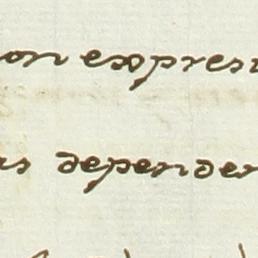 on expres
as dependen